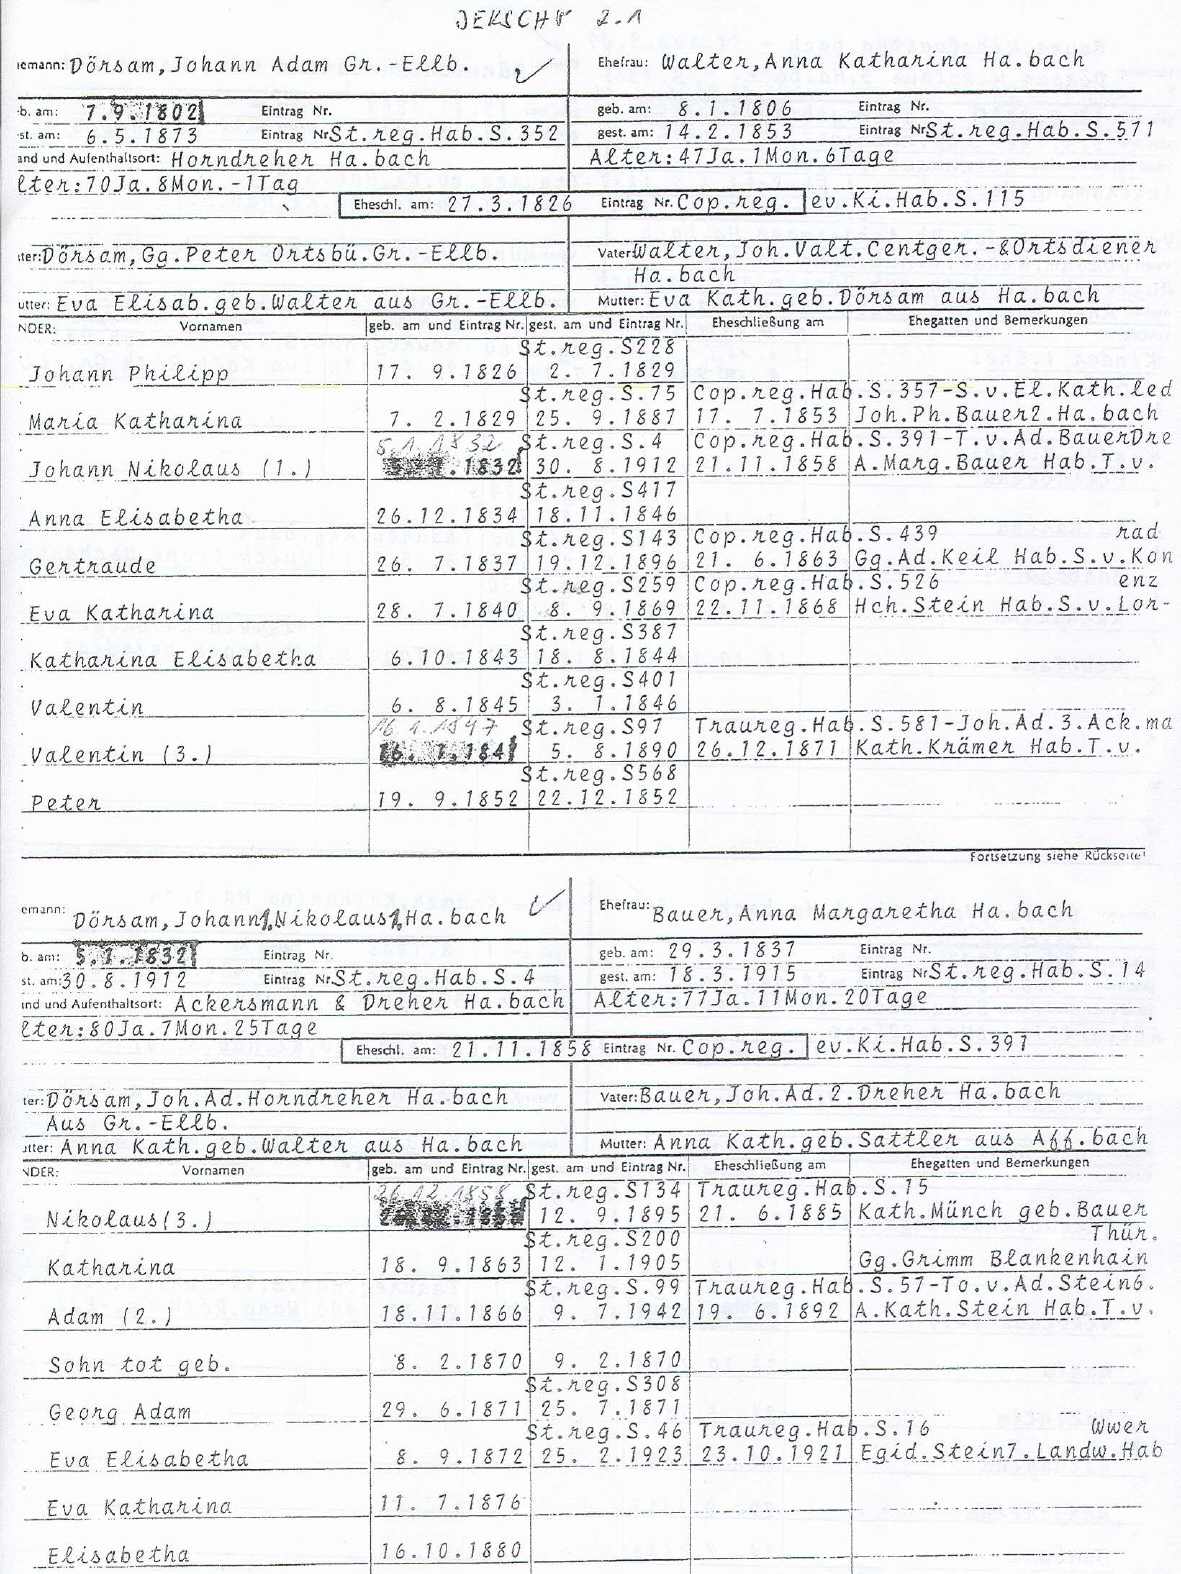 2.1
emann: Dörsam, Johann Adam Gr.-Ellb. Ehefrau: Walter, Anna Katharina Ha.bach
b. am: 7.9.1802 Eintrag Nr. geb. am: 8.1.1806 Eintrag Nr.
st. am: 6.5.1873 Eintrag Nr St.reg.Hab.S.352 gest. am: 14.2.1853 Eintrag Nr St.reg.Hab.S.571
and und Aufenthaltsort: Horndreher Ha.bach Alter:47Ja.1Mon.6Tage
lter:70Ja.8Mon.-1Tag
Eheschl. am: 27.3.1826 Eintrag Nr. Cop.reg. ev.Ki.Hab.S.115
ter: Dörsam,Gg.Peter Ortsbü.Gr.-Ellb. Vater: Walter,Joh.Valt.Centger.-&Ortsdiener
Ha.bach
utter: Eva Elisab.geb.Walter aus Gr.-Ellb. Mutter: Eva Kath.geb.Dörsam aus Ha.bach
NDER: Vornamen geb. am und Eintrag Nr. gest. am und Eintrag Nr. Eheschließung am Ehegatten und Bemerkungen
St.reg.S228
Johann Philipp 17. 9.1826 2. 7.1829
St.reg.S.75 Cop.reg.Hab.S.357-S.v.El.Kath.led
Maria Katharina 7. 2.1829 25. 9.1887 17. 7.1853 Joh.Ph.Bauer2.Ha.bach
5.1.1832 St.reg.S.4 Cop.reg.Hab.S.391-T.v.Ad.BauerDre
Johann Nikolaus (1.) 5.1.1832 30. 8.1912 21.11.1858 A.Marg.Bauer Hab.T.v.
St.reg.S417
Anna Elisabetha 26.12.1834 18.11.1846
St.reg.S143 Cop.reg.Hab.S.439 rad
Gertraude 26. 7.1837 19.12.1896 21. 6.1863 Gg.Ad.Keil Hab.S.v.Kon
St.reg.S259 Cop.reg.Hab.S.526 enz
Eva Katharina 28. 7.1840 8. 9.1869 22.11.1868 Hch.Stein Hab.S.v.Lor-
St.reg.S387
Katharina Elisabetha 6.10.1843 18. 8.1844
St.reg.S401
Valentin 6. 8.1845 3. 1.1846
16.1.1847 St.reg.S97 Traureg.Hab.S.581-Joh.Ad.3.Ack.ma
Valentin (3.) 16. 1.184 5. 8.1890 26.12.1871 Kath.Krämer Hab.T.v.
St.reg.S568
Peter 19. 9.1852 22.12.1852
Fortsetzung siehe Rückseite!
emann: Dörsam,Johann1.Nikolaus1.Ha.bach Ehefrau: Bauer,Anna Margaretha Ha.bach
b. am: 5.1.1832 Eintrag Nr. geb. am: 29.3.1837 Eintrag Nr.
st. am: 30.8.1912 Eintrag Nr St.reg.Hab.S.4 gest. am: 18.3.1915 Eintrag Nr St.reg.Hab.S.14
and und Aufenthaltsort: Ackersmann & Dreher Ha.bach Alter:77Ja.11Mon.20Tage
lter:80Ja.7Mon.25Tage
Eheschl. am: 21.11.1858 Eintrag Nr. Cop.reg. ev.Ki.Hab.S.391
ter: Dörsam,Joh.Ad.Horndreher Ha.bach Vater: Bauer,Joh.Ad.2.Dreher Ha.bach
Aus Gr.-Ellb.
utter: Anna Kath.geb.Walter aus Ha.bach Mutter: Anna Kath.geb.Sattler aus Aff.bach
NDER: Vornamen geb. am und Eintrag Nr. gest. am und Eintrag Nr. Eheschließung am Ehegatten und Bemerkungen
26.12.1858 St.reg.S134 Traureg.Hab.S.15
Nikolaus(3.) 12. 9.1895 21. 6.1885 Kath.Münch geb.Bauer
St.reg.S200 Thür.
Katharina 18. 9.1863 12. 1.1905 Gg.Grimm Blankenhain
St.reg.S.99 Traureg.Hab.S.57-To.v.Ad.Stein6.
Adam (2.) 18.11.1866 9. 7.1942 19. 6.1892 A.Kath.Stein Hab.T.v.
Sohn tot geb. 8. 2.1870 9. 2.1870
St.reg.S308
Georg Adam 29. 6.1871 25. 7.1871
St.reg.S.46 Traureg.Hab.S.16 Wwer
Eva Elisabetha 8. 9.1872 25. 2.1923 23.10.1921 Egid.Stein7.Landw.Hab
Eva Katharina 11. 7.1876
Elisabetha 16.10.1880